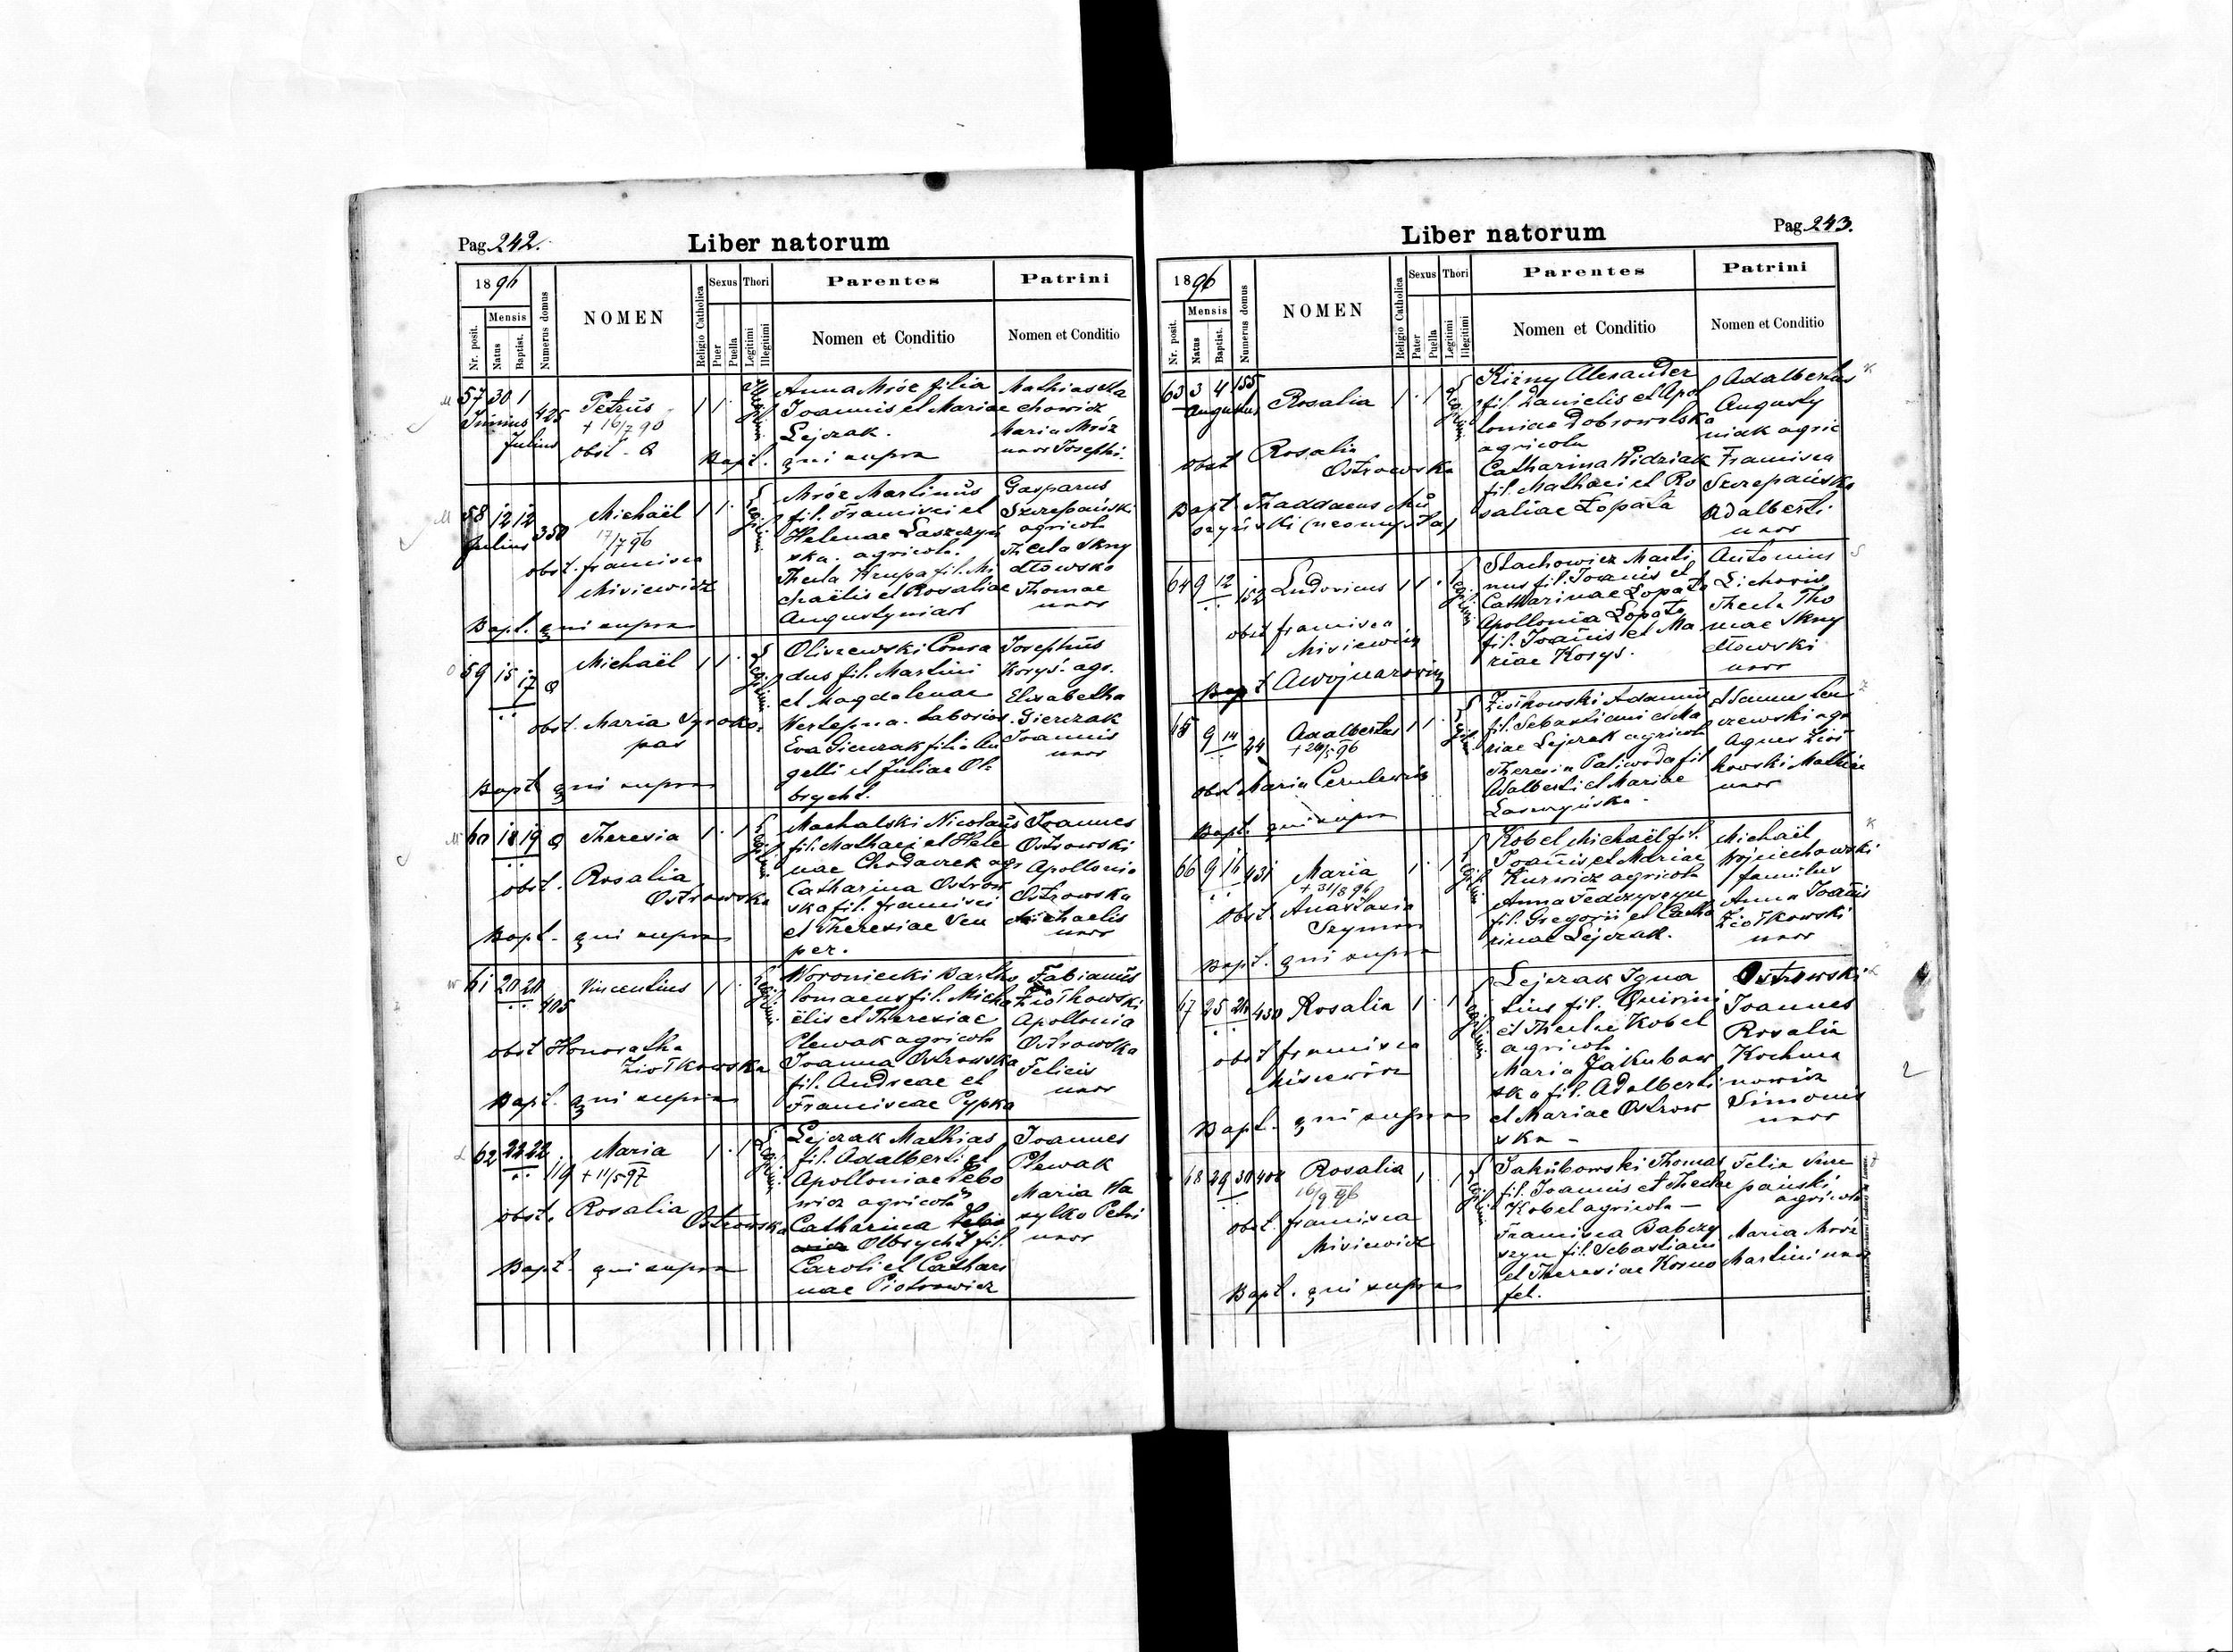 Pag. 242.
Liber natorum
1896
Nr. posit.
Mensis
Natus
Baptist.
Numerus domus
NOMEN
Religio Catholica
Sexus
Puer
Puella
Thori
Legitimi
Illegitimi
Parentes
Nomen et Conditio
Patrini
Nomen et Conditio
57 30 1 425 Petrus
Junius Julius
obst.
Anna Mróz filia
Joannis et Mariae
Lejczak.
Bapt. qui supra
Maria Mróz
uxor Josephi.
58 12 12 350 Michaël
Julius
17/7 96
obst. Francisca
Misiewicz
Bapt. qui supra
Mróz Martinus
fil. Francisci et
Helenae Laszczyń
ska. agricola.
Thecla Krupa fil. Mi
chaëlis et Rosaliae
Augustyniak
Gasparus
Szczepański
agricola
Thecla Skny
dłowska
Thomae
uxor
59 15 17 Michaël
obst. Maria
Bapt. qui supra
Oliszewski Conra
dus fil. Martini
et Magdalenae
Eva Gierczak filia An
gelli et Juliae Ol
brycht.
Josephus
Korys. agr.
Elisabetha
Gierczak
Joannis
uxor
60 18 19 Theresia
obst. Rosalia
Ostrowska
Bapt. qui supra
Machalski Nicolaus
fil. Mathaei et Hele
nae Chodaczek agr
Catharina Ostrow
ska fil. Francisci
et Theresiae Sen
per.
Joannes
Ostrowski
Apollonia
Ostrowska
Michaelis
uxor
61 20 20 405 Vincentius
obst. Honoratha
Ziółkowska
Bapt. qui supra
Woroniecki Bartho
lomaeus fil. Micha
ëlis et Theresiae
Plewak agricola
Joanna Ostrowska
fil. Andreae et
Franciscae Pypka
Fabianus
Ziółkowski
Apollonia
Ostrowska
Felicis
uxor
62 22 22 119 Maria
+ 11/5 97
obst. Rosalia
Ostrowska
Bapt. qui supra
Lejczak Mathias
fil. Adalberti et
Apolloniae Tebo
wicz agricola
Catharina
Olbrycht fil.
Caroli et Cathari
nae Piotrowicz
Joannes
Plewak
Maria Wa
sylko Petri
uxor
Pag. 243.
Liber natorum
1896
Nr. posit.
Mensis
Natus
Baptist.
Numerus domus
NOMEN
Religio Catholica
Sexus
Pater
Puella
Thori
Legitimi
Illegitimi
Parentes
Nomen et Conditio
Patrini
Nomen et Conditio
63 3 4 155 Rosalia
Augustus
obst. Rosalia
Ostrowska
Bapt. Thaddaeus
(neomysta)
Kiżny Alexander
fil. Danielis et Apol
loniae Dobrowolska
agricola
Catharina Widziak
fil. Mathaei et Ro
saliae Łopata
Adalbertus
Augusty
niak agric
Francisca
Szczepańska
Adalberti
uxor
64 9 12 152 Ludovicus
obst. Francisca
Misiewicz
Bapt. A Wojnarowicz
Stachowicz Marti
nus fil. Joannis et
Catharinae Łopata
Apollonia Łopata
fil. Joannis et Ma
riae Korys.
Antonius
Thecla Tho
mae Skny
dłowski
uxor
65 9 14 24 Adalbertus
obst. Maria Cerulewicz
Bapt. qui supra
Ziółkowski Adamus
fil. Sebastiani et Ma
riae Lejczak agricola
Theresia Paliwoda fil
Adalberti et Mariae
Laszczyńska.
Agnes Ziół
kowski Mathiae
uxor
66 9 16 431 Maria
+ 31/8 96
obst. Anastasia
Szymon
Bapt. qui supra
Kobel Michaël fil.
Joannis et Mariae
Kurwicz agricola
Anna Fedczyszyn
fil. Gregorii et Catha
rinae Lejczak.
Michaël
Wojciechowski
famulus
Anna Joannis
Ziółkowski
uxor
67 25 26 430 Rosalia
obst. Francisca
Misiewicz
Bapt. qui supra
Lejczak Igna
tius fil. Quirini
et Theclae Kobel
agricola.
Maria Jakubow
ska fil. Adalberti
et Mariae Ostrow
ska –
Ostrowski
Joannes
Rosalia
Kochma
nowicz
Simonis
uxor
68 29 30 408 Rosalia
16/9 96
obst. Francisca
Misiewicz
Bapt. qui supra
Jakubowski Thomas
fil. Joannis et Theclae
Kobel agricola –
Francisca Babczy
szyn fil. Sebastiani
et Theresiae Kosno
fel.
Felix Szcze
pański
agricola
Maria Mróz
Martini uxor